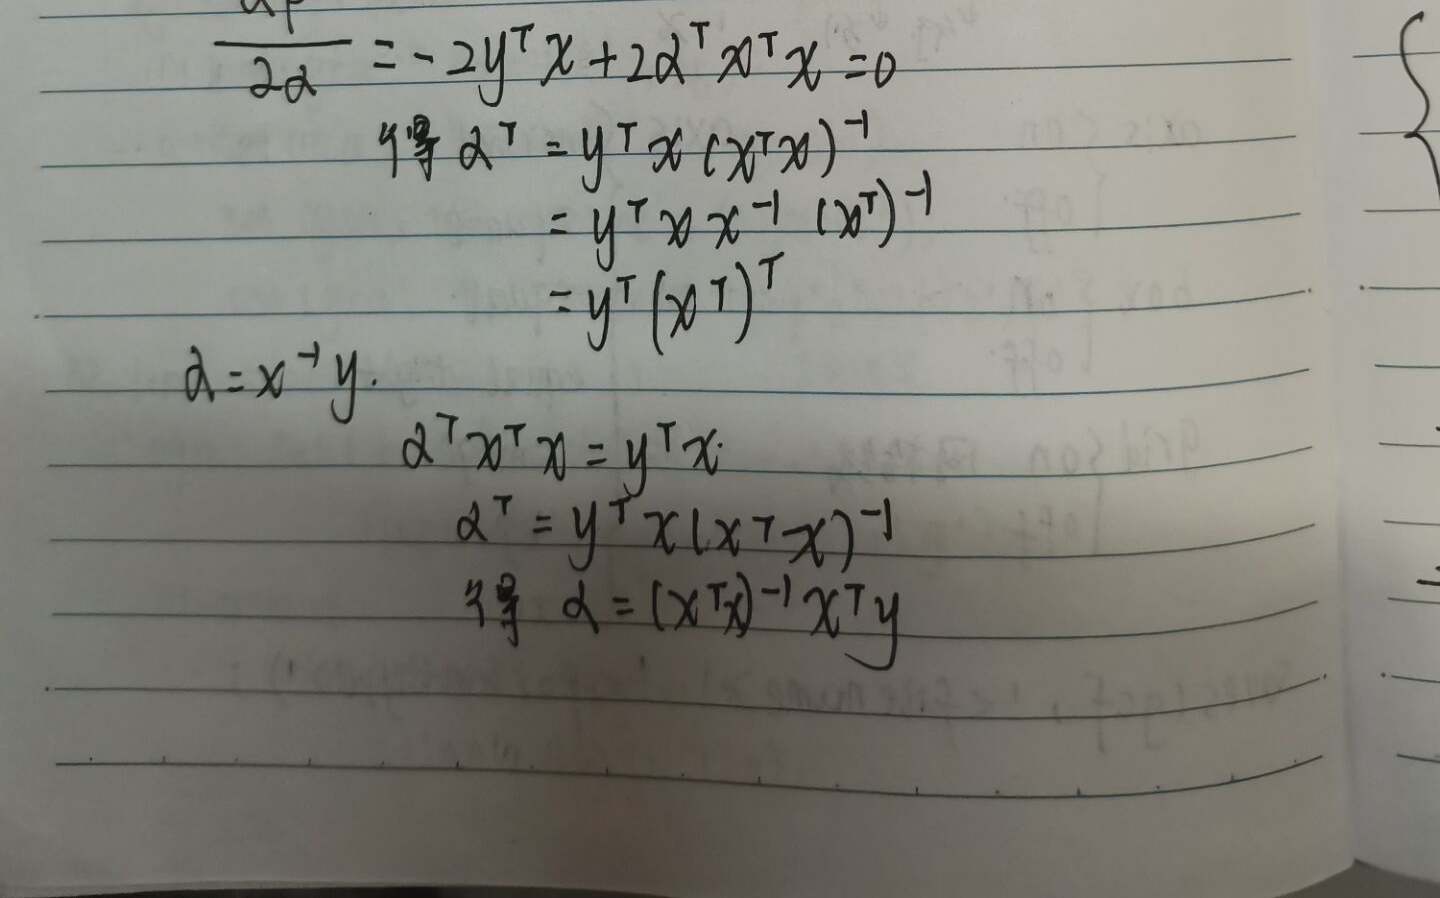 ∂α = -2yᵀx + 2αᵀxᵀx = 0
得 αᵀ = yᵀx(xᵀx)⁻¹
= yᵀx x⁻¹ (xᵀ)⁻¹
= yᵀ(xᵀ)ᵀ
α = x⁻¹y.
αᵀxᵀx = yᵀx.
αᵀ = yᵀx(xᵀx)⁻¹
得 α = (xᵀx)⁻¹xᵀy